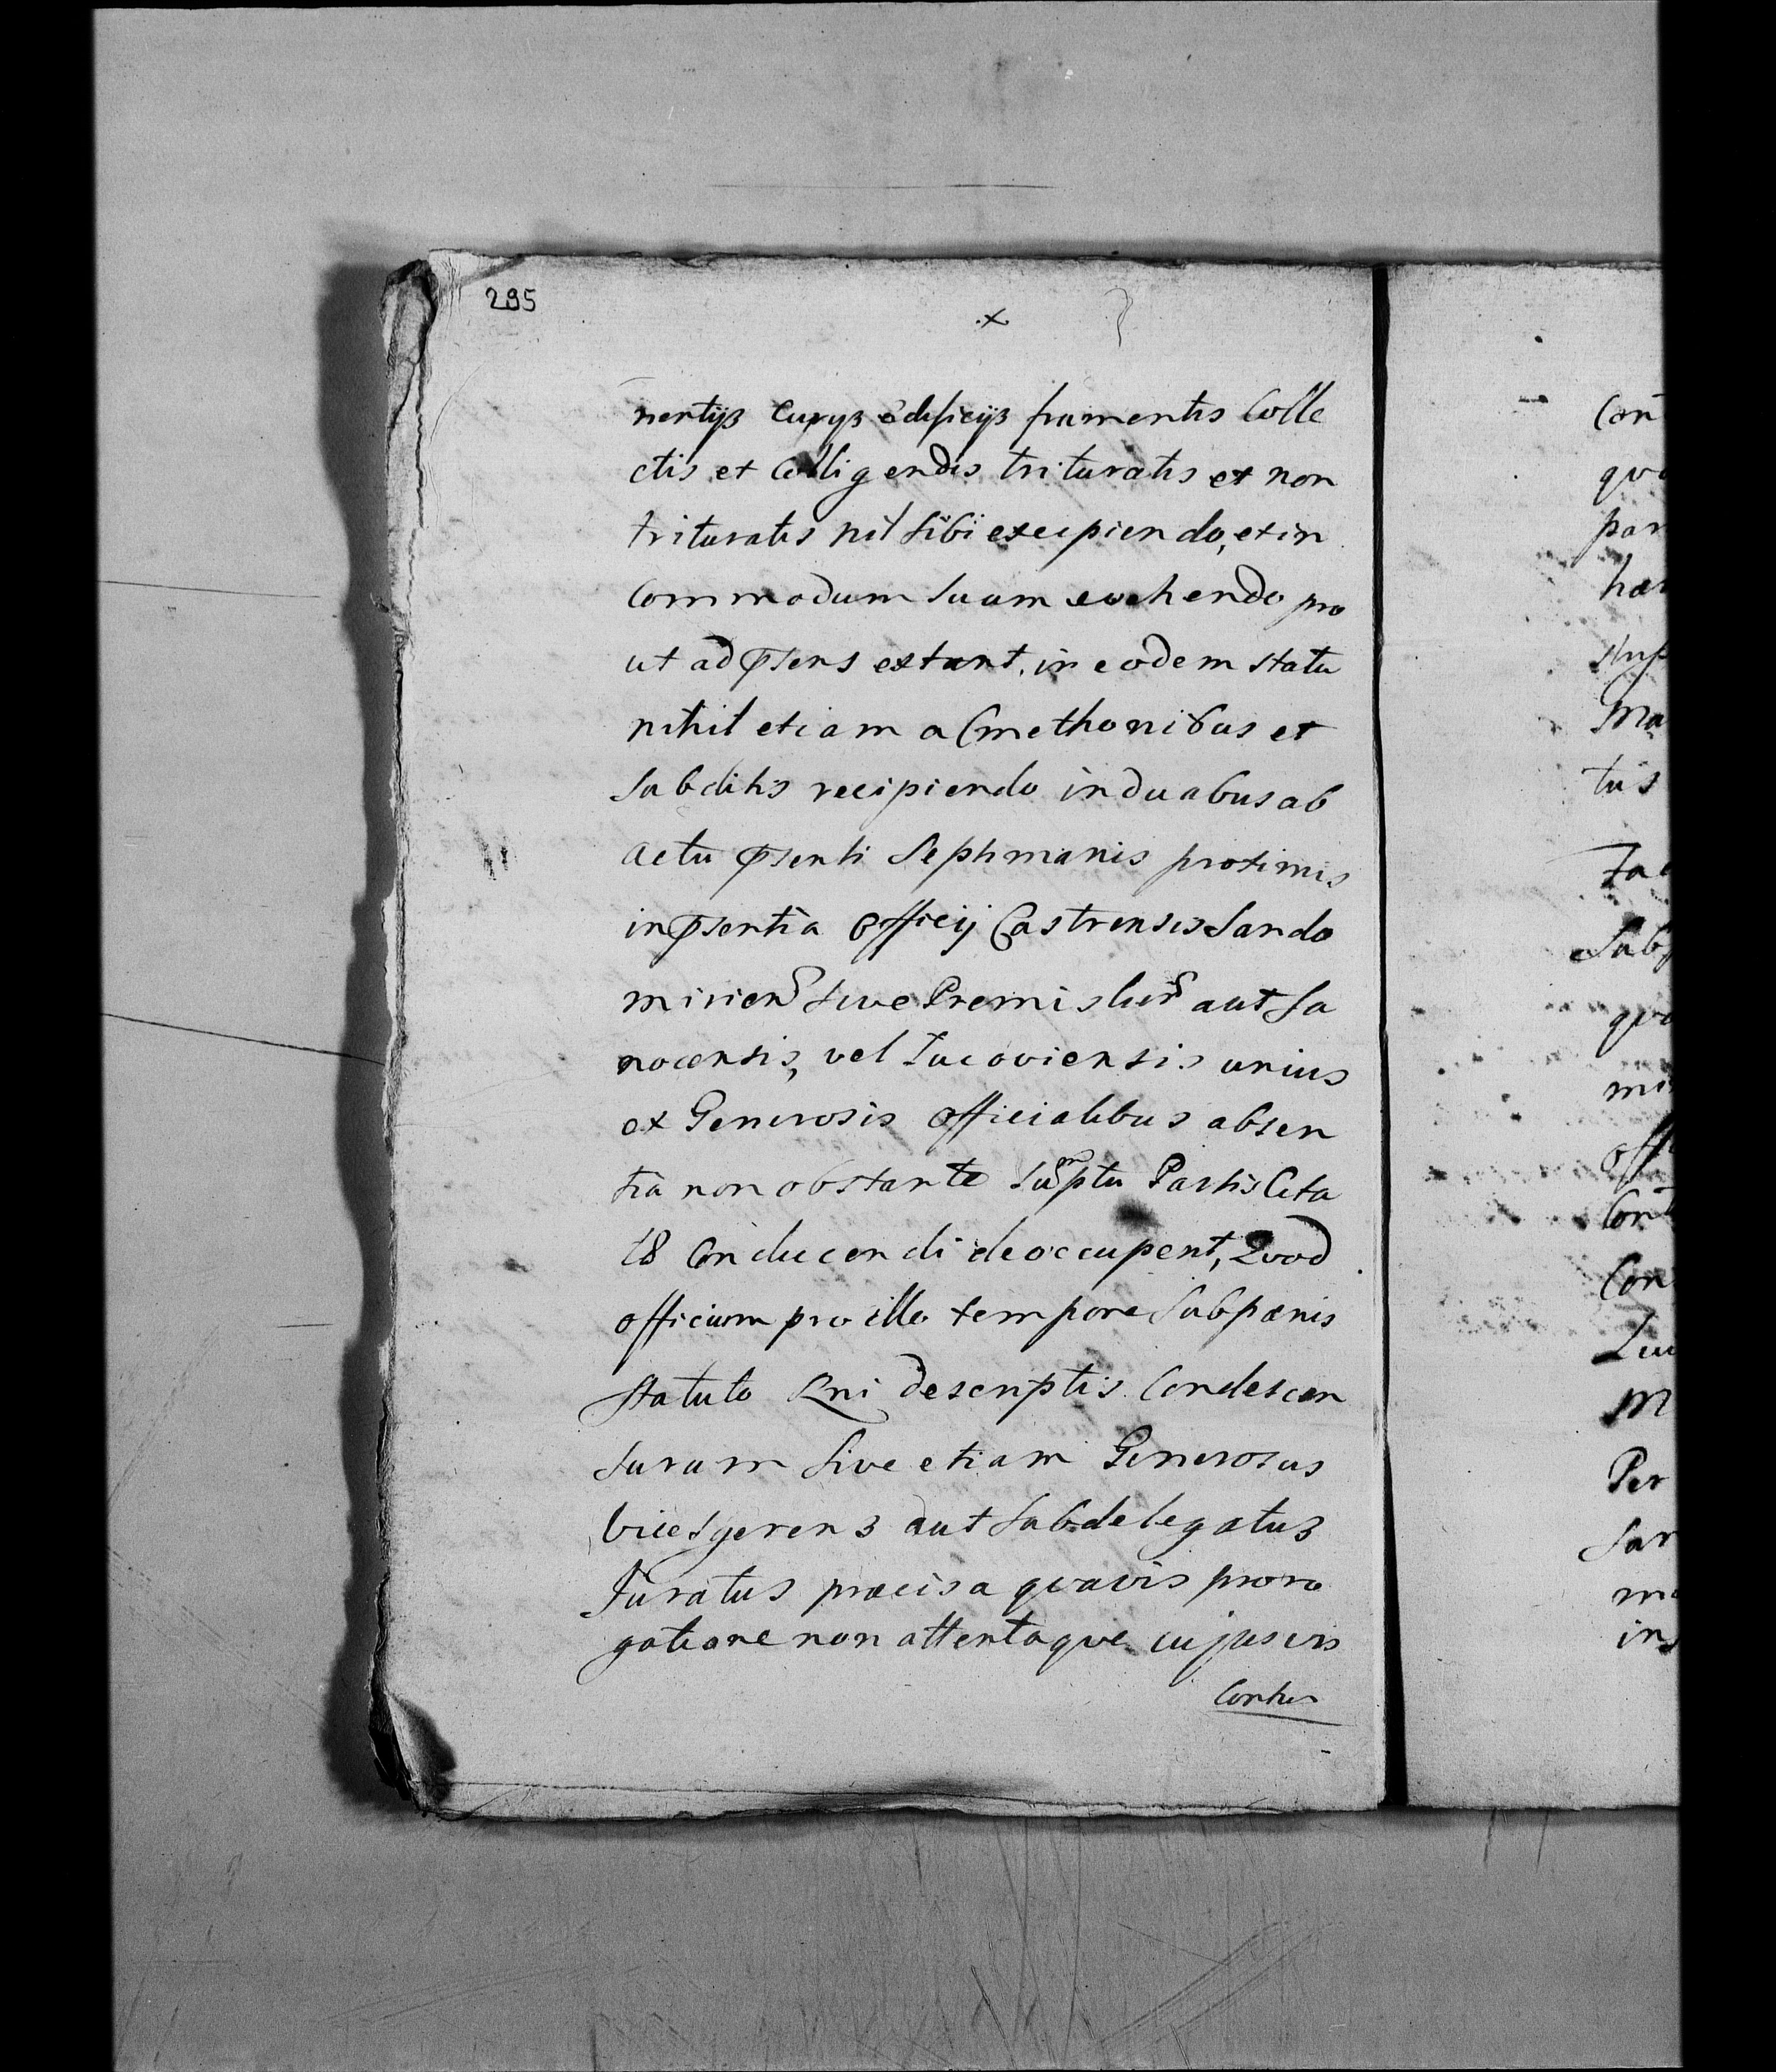 295
nentijs Curys Edificijs frumentis Colle
ctis et Colligendis trituratis et non
trituratis nil sibi excipiendo, et in
Commodum suum evehendo pro
ut ad pñsens extant, in eodem statu
nihil etiam a Cmethonibus et
Subditis recipiendo in duabus ab
actu pñsenti Septimanis proximis
in pñsentia Officij Castrensis Sando
mirien sive Premislien aut Sa
nocensis, vel Zucoviensis unius
ex Generosis Officialibus absen
tia non obstante Sumptu Partis Cita
t8 Conducendi deoccupent, Quod
officium pro illo tempore Sub pœnis
Statuto Rni descriptis Condescen
surum Sive etiam Generosus
Vicesgerens aut Subdelegatus
Juratus præcisa quavis proro
gatione non attentaque cujusvis
Contu
Con
qvo
par
hær
Ma
tus
Sub
qvo
offi
Con
M
Per
Sar
ins